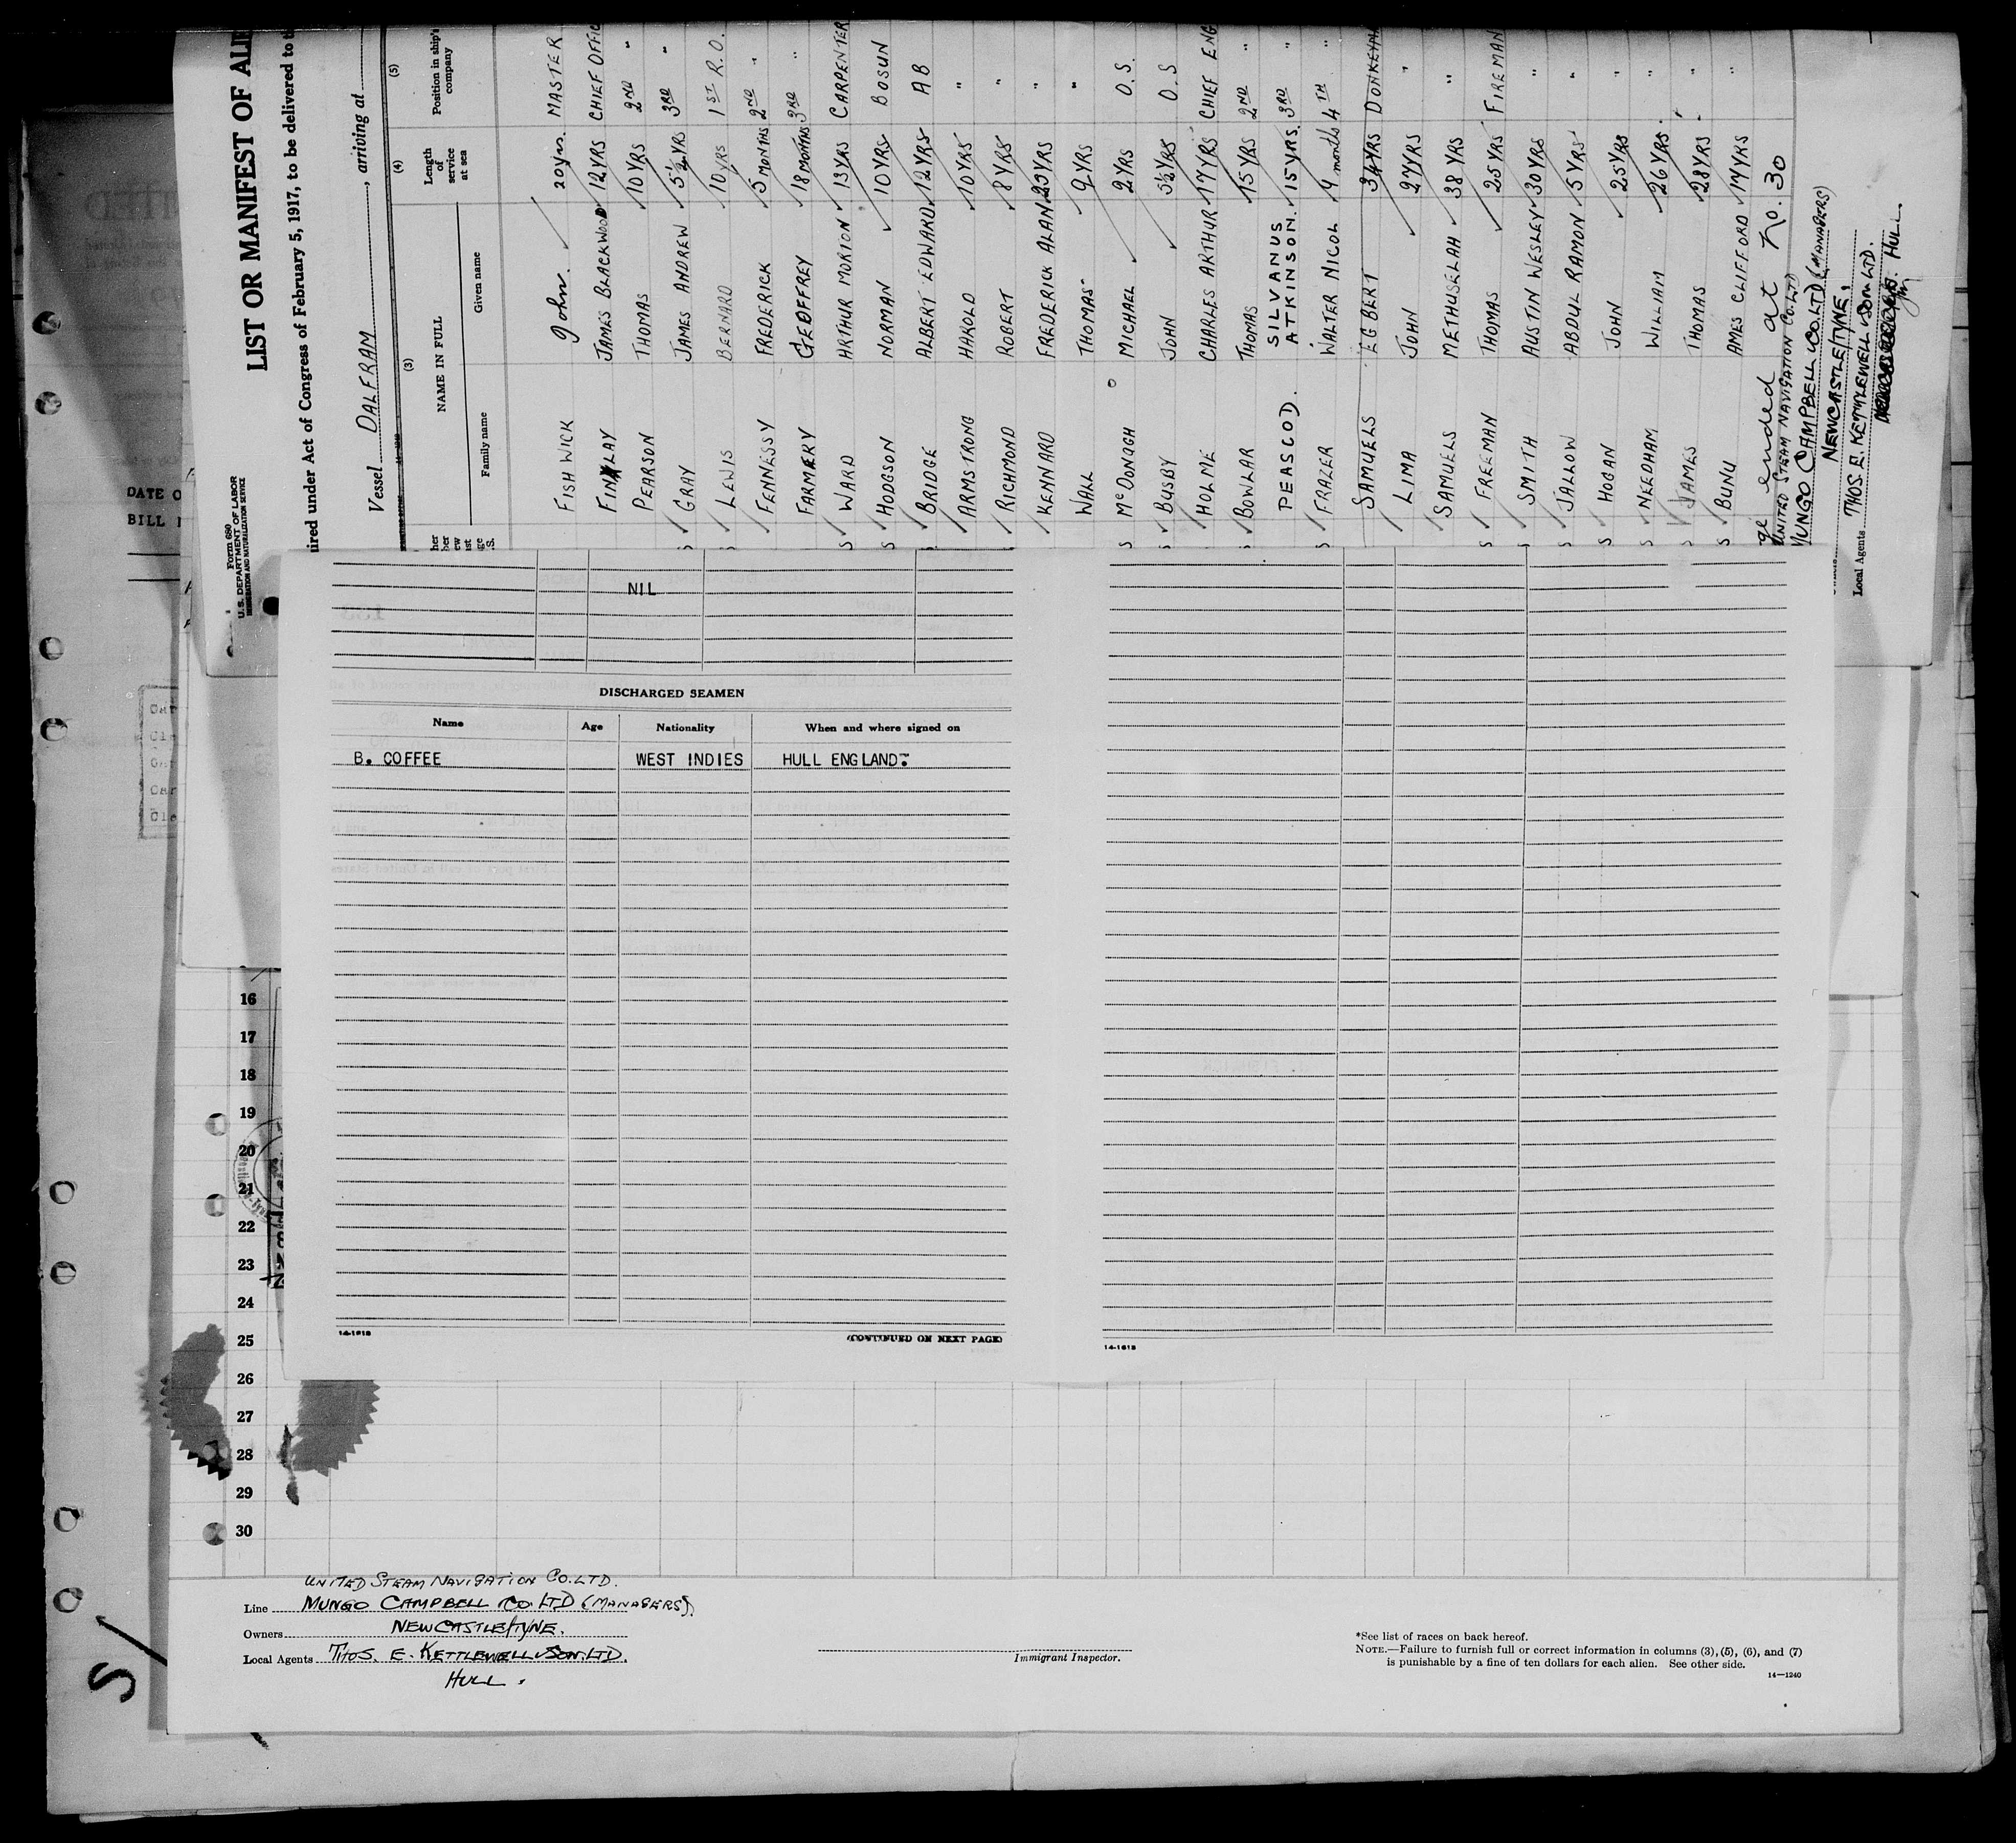 LIST OR MANIFEST OF
Form 680
U.S. DEPARTMENT OF LABOR
IMMIGRATION AND NATURALIZATION SERVICE
ired under Act of Congress of February 5, 1917, to be delivered to
Vessel DALFRAM, arriving at
(3) (4) (5)
NAME IN FULL
Length of service at sea
Position in ship's company
Family name Given name
FISHWICK John. 20 yrs. MASTER
FINLAY JAMES BLACKWOOD 12 YRS CHIEF
PEARSON THOMAS 10 YRS 2ND "
GRAY JAMES ANDREW 5½ YRS 3RD "
LEWIS BERNARD 10 YRS 1ST R.O.
FENNESSY FREDERICK 5 MONTHS 2ND "
FARMERY GEOFFREY 18 MONTHS 3RD "
WARD ARTHUR MORTON 13 YRS CARPENTER
HODGSON NORMAN 10 YRS BOSUN
BRIDGE ALBERT EDWARD 12 YRS AB
ARMSTRONG HAROLD 10 YRS "
RICHMOND ROBERT 8 YRS "
KENNARD FREDERICK ALAN 25 YRS "
WALL THOMAS 9 YRS "
McDONAGH MICHAEL 2 YRS O.S.
BUSBY JOHN 5½ YRS O.S
HOLME CHARLES ARTHUR 17 YRS CHIEF ENG
BOWLAR THOMAS 15 YRS 2ND "
PEASCOD. SILVANUS ATKINSON. 15 YRS. 3RD "
FRAZER WALTER NICOL 4 months 4TH "
SAMUELS EGBERT 34 YRS
LIMA JOHN 27 YRS "
SAMUELS METHUSELAH 38 YRS "
FREEMAN THOMAS 25 YRS FIREMAN
SMITH AUSTIN WESLEY 30 YRS "
JALLOW ABDUL RAMON 5 YRS "
HOGAN JOHN 25 YRS "
NEEDHAM WILLIAM 26 YRS. "
JAMES THOMAS 28 YRS "
BUNU AMES CLIFFORD 14 YRS "
ended at No. 30
UNITED STEAM NAVIGATION CO. LTD
MUNGO CAMPBELL & CO. LTD (MANAGERS)
NEWCASTLE/TYNE.
Local Agents THOS. E. KETTLEWELL & SON LTD.
HULL.
DATE O
BILL
NIL
DISCHARGED SEAMEN
Name Age Nationality When and where signed on
B. COFFEE WEST INDIES HULL ENGLAND
14-1618
(CONTINUED ON NEXT PAGE)
14-1618
16
17
18
19
20
21
22
23
24
25
26
27
28
29
30
UNITED STEAM NAVIGATION CO. LTD.
Line MUNGO CAMPBELL & CO LTD (MANAGERS).
Owners NEWCASTLE/TYNE.
Local Agents THOS. E. KETTLEWELL & SON. LTD.
HULL.
Immigrant Inspector.
*See list of races on back hereof.
NOTE.—Failure to furnish full or correct information in columns (3), (5), (6), and (7)
is punishable by a fine of ten dollars for each alien. See other side.
14—1240
S/